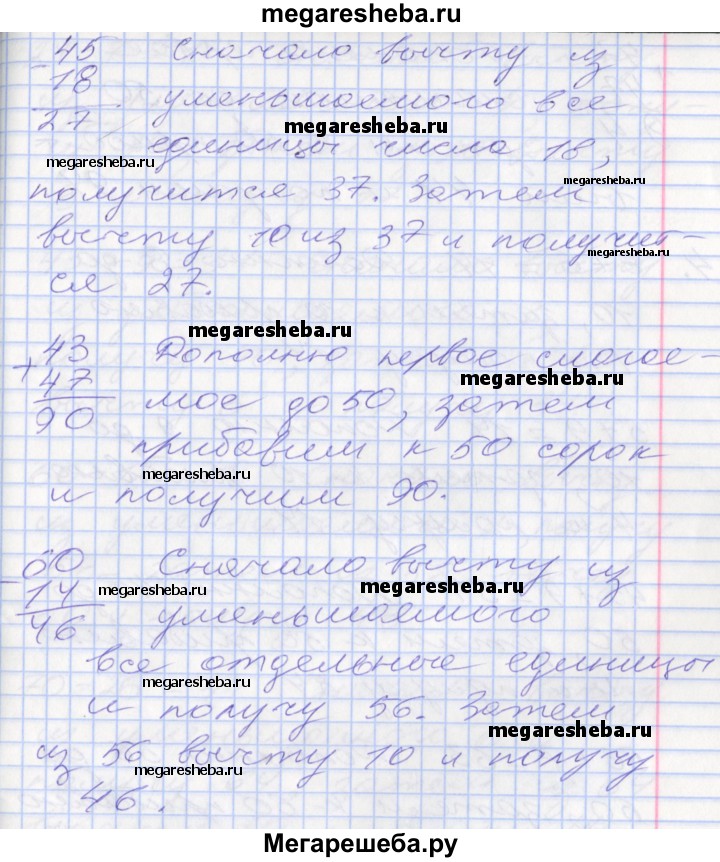 megaresheba.ru
45 Сначало вычту из
- 18 уменьшаемого все
27 megaresheba.ru
megaresheba.ru единицы числа 18,
megaresheba.ru
получится 37. Затем
вычту 10 из 37 и получит-
megaresheba.ru
ся 27.
megaresheba.ru
43 Дополню первое слогае-
megaresheba.ru
+ 47 мое до 50, затем
90 прибавим к 50 сорок
megaresheba.ru
и получим 90.
60 Сначало вычту из
- 14 megaresheba.ru megaresheba.ru
46 уменьшаемого
все отдельные единицы
megaresheba.ru
и получу 56. Затем
megaresheba.ru
из 56 вычту 10 и получу
megaresheba.ru
46.
Мегарешеба.ру